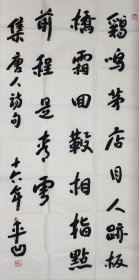 鷄鳴茅店月人跡板
橋霜回相指點
前程是青雲
集唐人詩句 十六年 平凹